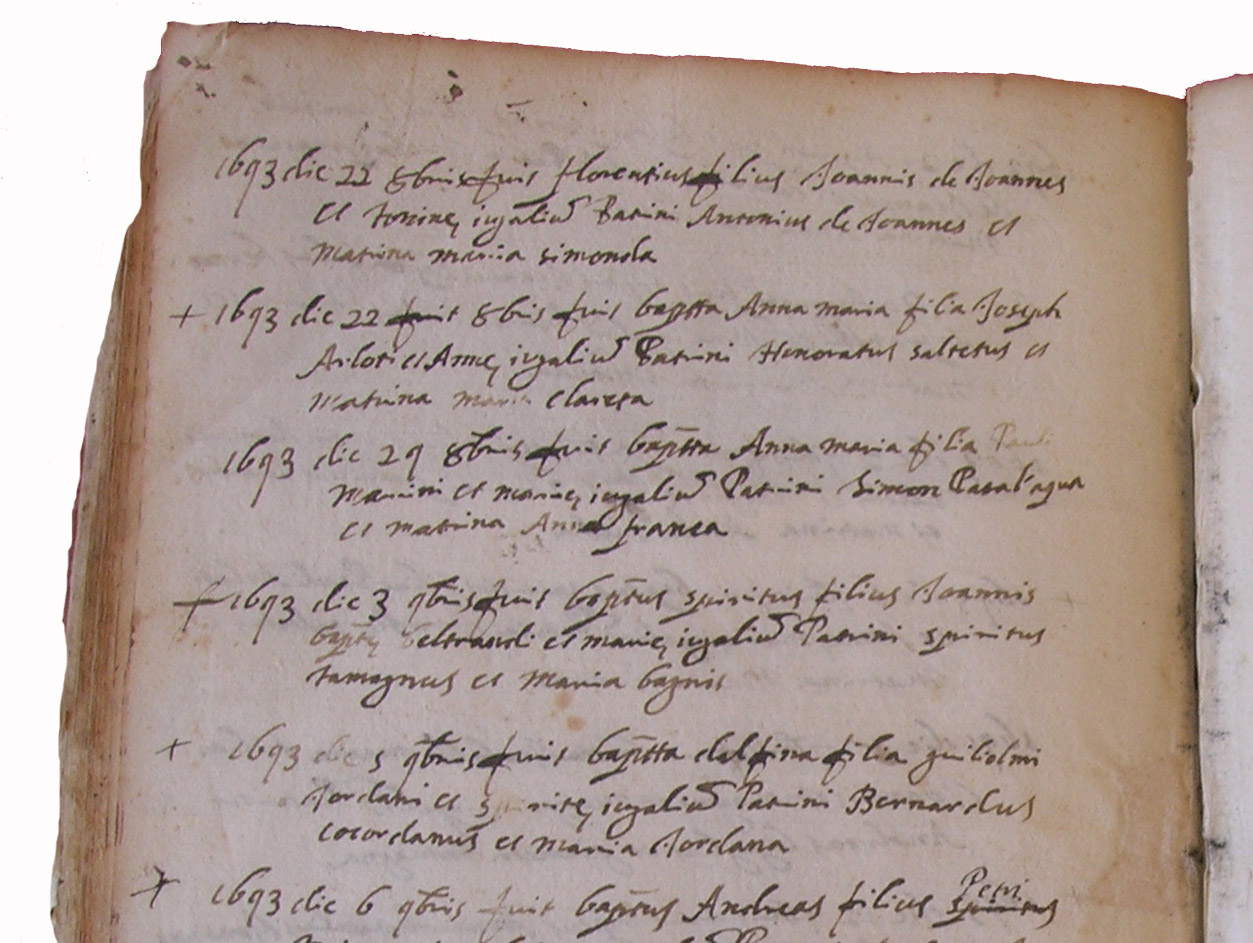 1693 die 22 8bris fuit florentius filius Joannis de Joannes
et tonine iugaliū Patrini Antonius de Joannes et
Matrina maria simonda
+ 1693 die 22 fuit 8bis fuit bap̄tta Anna maria filia Joseph
Arloti et Anne iugaliū Patrini Honoratus saltetus et
Matrina maria claresa
1693 die 29 8b̄ris fuit bap̄tta Anna maria filia Pauli
Manini et marie iugaliū Patrini Simon
et matrina Anna franca
+ 1693 die 3 9b̄ris fuit bap̄tus spiritus filius Joannis
bap̄te beltrandi et marie iugaliū Patrini spiritus
tamagnus et Maria bagnis
+ 1693 die 5 9b̄ris fuit bap̄tta delfina filia guilielmi
Jordani et spirite iugaliū Patrini Bernardus
cocordanus et maria Jordana
+ 1693 die 6 9b̄ris fuit bap̄tus Andreas filius Petri spiritus